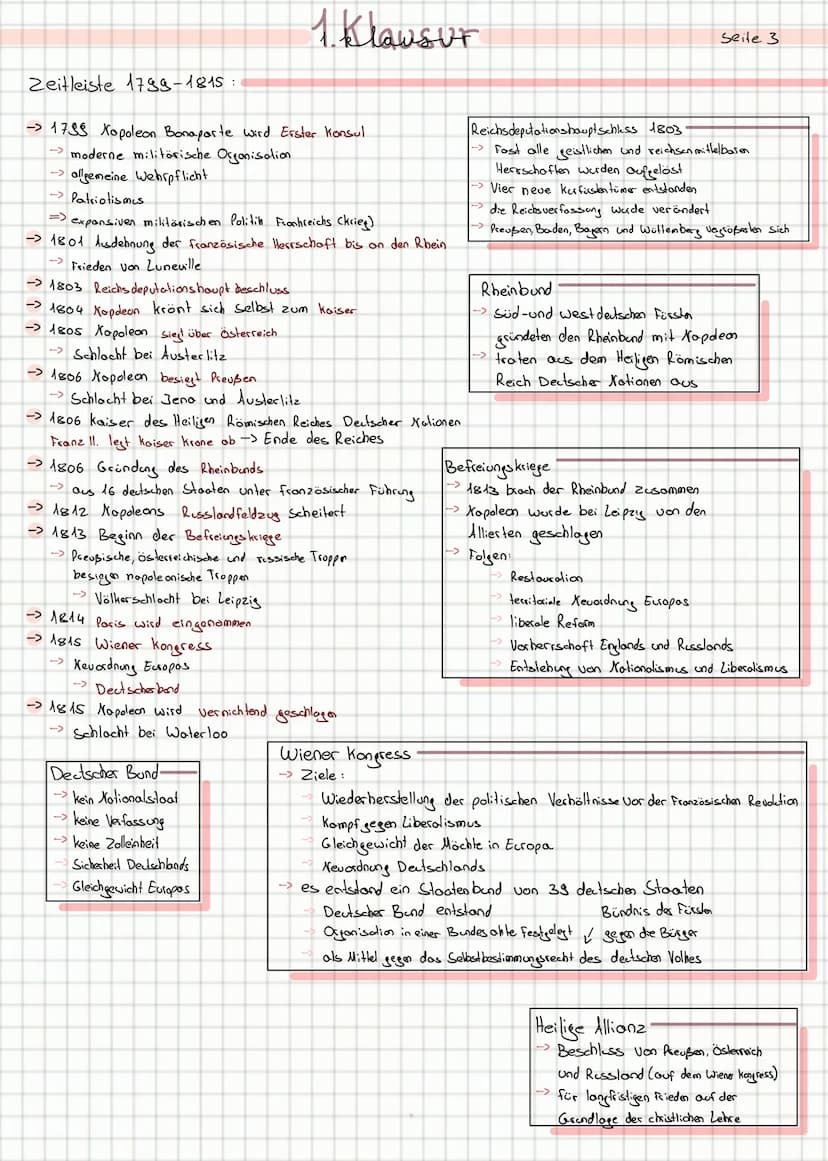 1. Klausur
Seite 3
Zeitleiste 1799-1815:
-> 1799 Napoleon Bonaparte wird Erster Konsul
-> moderne militärische Organisation
-> allgemeine Wehrpflicht
-> Patriotismus
=> expansiven militärischen Politik Frankreichs (krieg)
-> 1801 Ausdehnung der französische Herrschaft bis an den Rhein
-> Frieden von Luneville
-> 1803 Reichsdeputationshaupt beschluss
-> 1804 Napoleon krönt sich selbst zum Kaiser
-> 1805 Napoleon siegt über Österreich
-> Schlacht bei Austerlitz
-> 1806 Napoleon besiegt Preußen
-> Schlacht bei Jena und Austerlitz
-> 1806 Kaiser des Heiligen Römischen Reiches Deutscher Nationen
Franz II. legt Kaiser Krone ab -> Ende des Reiches
-> 1806 Gründung des Rheinbunds
-> aus 16 deutschen Staaten unter französischer Führung
-> 1812 Napoleons Russlandfeldzug scheitert
-> 1813 Beginn der Befreiungskriege
-> Preußische, österreichische und russische Truppn
besiegen napoleonische Truppen
-> Völkerschlacht bei Leipzig
-> 1814 Paris wird eingenommen
-> 1815 Wiener Kongress
-> Neuordnung Europas
-> Deutscherbund
-> 1815 Napoleon wird vernichtend geschlagen
-> Schlacht bei Waterloo
Reichsdeputationshauptschluss 1803
-> Fast alle geistlichen und reichsenmittelbaren
Herrschaften wurden aufgelöst
-> Vier neue Kurfüstentümer entstanden
-> die Reichsverfassung wurde verändert
-> Preußen, Baden, Bayern und Württemberg vergrößerten sich
Rheinbund
-> Süd- und westdeutschen Fürsten
gründeten den Rheinbund mit Napoleon
-> traten aus dem Heiligen Römischen
Reich Deutscher Nationen aus
Befreiungskriege
-> 1813 brach der Rheinbund zusammen
-> Napoleon wurde bei Leipzig von den
Alliierten geschlagen
-> Folgen:
-> Restauration
-> territoriale Neuordnung Europas
-> liberale Reform
-> Vorherrschaft Englands und Russlands
-> Entstehung von Nationalismus und Liberalismus
Deutscher Bund
-> kein Nationalstaat
-> keine Verfassung
-> keine Zolleinheit
-> Sicherheit Deutschlands
-> Gleichgewicht Europas
Wiener Kongress
-> Ziele:
-> Wiederherstellung der politischen Verhältnisse vor der Französischen Revolution
-> Kampf gegen Liberalismus
-> Gleichgewicht der Mächte in Europa
-> Neuordnung Deutschlands
-> es entstand ein Staatenbund von 39 deutschen Staaten
-> Deutscher Bund entstand Bündnis der Fürsten
-> Organisation in einer Bundesakte festgelegt ↙ gegen die Bürger
-> als Mittel gegen das Selbstbestimmungsrecht des deutschen Volkes
Heilige Allianz
-> Beschluss von Preußen, Österreich
und Russland (auf dem Wiener Kongress)
-> für langfristigen Frieden auf der
Grundlage der christlichen Lehre